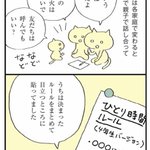 は各家庭で変わると
で親子で話し合
火は
友だちは
呼んでも
いい
などなど
うちは決まった
ルールをまとめて
目立つところに
貼ってました
ひとり時間
ルール
(4年生バージョン)